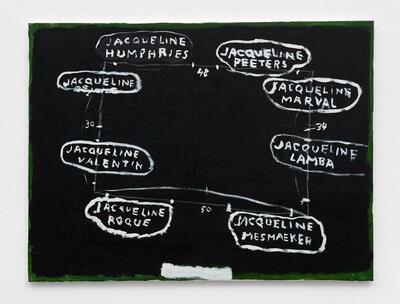 JACQUELINE
HUMPHRIES
JACQUELINE
PEETERS
48
JACQUELINE
JACQUELINE
MARVAL
30
34
JACQUELINE
VALENTIN
JACQUELINE
LAMBA
JACQUELINE
ROQUE
50
JACQUELINE
MESMAEKER